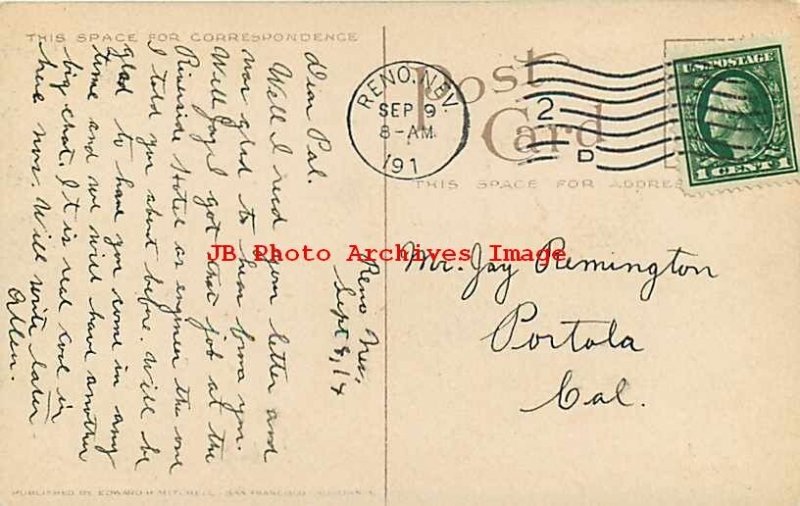 THIS SPACE FOR CORRESPONDENCE
Post
Card
THIS SPACE FOR ADDRESS
RENO, NEV.
SEP 9
8-AM
191
2
D
U.S. POSTAGE
1 CENT 1
Reno Nev,
Sept 8, 14
Dear Pal.
Well I recd your letter and
was glad to hear from you.
Well Jay I got that job at the
Riverside Hotel as engineer the one
I told you about before. Will be
glad to have you come in any
time and we will have another
big chat. It is real cool in
here now. Will write later
Allen.
Mr. Jay Remington
Portola
Cal.
JB Photo Archives Image
PUBLISHED BY EDWARD H MITCHELL - SAN FRANCISCO